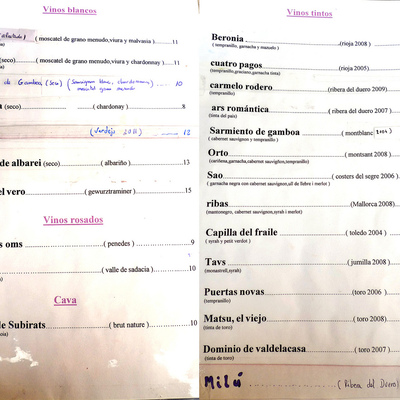 Vinos blancos
(afrutado) ( moscatel de grano menudo,viura y malvasia )..........11
(seco) ( moscatel de grano menudo,viura y chardonnay )....11
de Gamboa (seco) ( Sauvignon blanc, chardonnay 10
moscatel grano menudo
(seco) ( chardonay ) 8
( Verdejo 2011 ) 12
de albarei (seco) ( albariño ) 13
el vero ( gewurztraminer ) 15
Vinos rosados
s oms ( penedes ) 9
( valle de sadacia ) 10
Cava
de Subirats ( brut nature ) 10
Vinos tintos
Beronia (rioja 2008 )
( tempranillo, garnacha y mazuelo )
cuatro pagos (rioja 2005)
(tempranillo,graciano,garnacha tinta)
carmelo rodero (ribera del duero 2009)
(tempranillo)
ars romántica ( ribera del duero 2007 )
(tinta del pais)
Sarmiento de gamboa ( montblanc )
( cabernet sauvignon y tempranillo )
Orto ( montsant 2008 )
(cariñena,garnacha,cabernet sauvignon,tempranillo)
Sao ( costers del segre 2006 )
( garnacha negra con cabernet sauvignon,ull de llebre i merlot )
ribas (Mallorca 2008)
(mantonegro, cabernet sauvignon,syrah i merlot )
Capilla del fraile ( toledo 2004 )
( syrah y petit verdot )
Tavs ( jumilla 2008 )
(monastrell,syrah)
Puertas novas (toro 2006 )
(tempranillo)
Matsu, el viejo ( toro 2008)
(tinta de toro)
Dominio de valdelacasa ( toro 2007 )
(tinta de toro)
Milú ( Ribera del Duero)